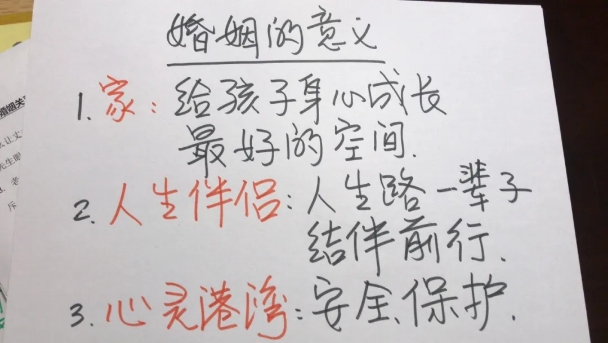 婚姻的意义
1. 家：给孩子身心成长
最好的空间.
2. 人生伴侣：人生路一辈子
结伴前行.
3. 心灵港湾：安全、保护.